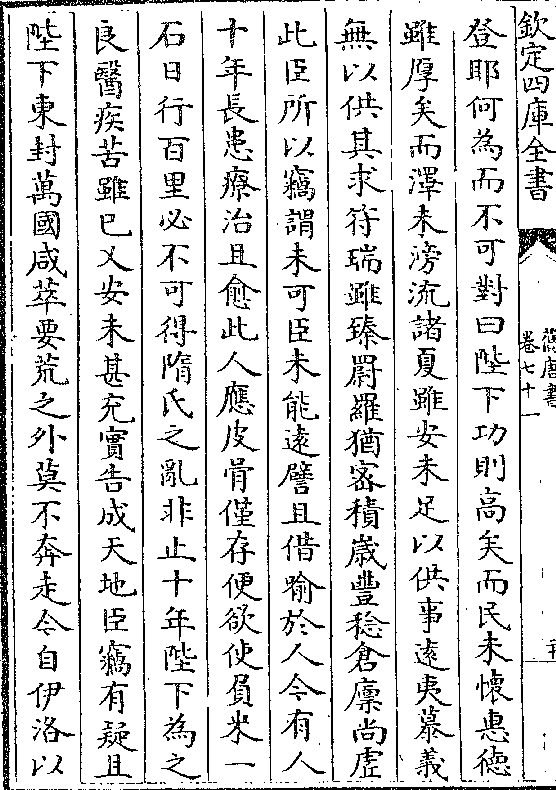 欽定四庫全書
舊唐書
卷七十一
登耶何為而不可對曰陛下功則高矣而民未懷惠德
雖厚矣而澤未滂流諸夏雖安未足以供事遠夷慕義
無以供其求符瑞雖臻罻羅猶密積歲豐稔倉廩尚虛
此臣所以竊謂未可臣未能遠譬且借喻於人今有人
十年長患療治且愈此人應皮骨僅存便欲使負米一
石日行百里必不可得隋氏之亂非止十年陛下為之
良醫疾苦雖已乂安未甚充實告成天地臣竊有疑且
陛下東封萬國咸萃要荒之外莫不奔走今自伊洛以